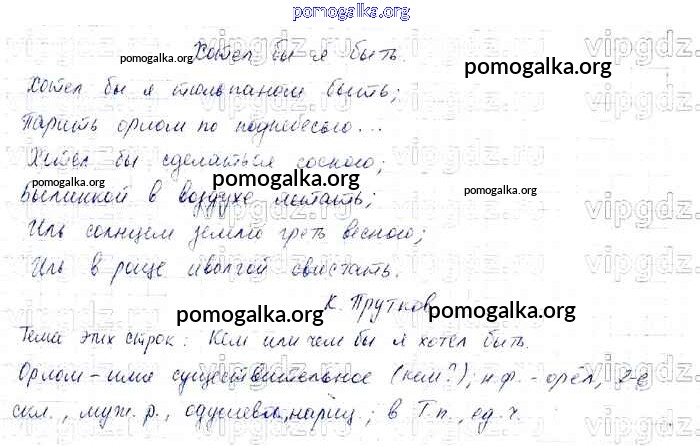 pomogalka.org
Хотел бы я быть.
Хотел бы я тюльпаном быть;
Парить орлом по поднебесью...
Хотел бы сделаться сосною;
Былинкой в воздухе летать;
Иль солнцем землю греть весною;
Иль в роще иволгой свистать.
К. Прутков
Тема этих строк: Кем или чем бы я хотел быть.
Орлом – имя существительное (кем?), н.ф. – орёл, 2-е
скл., муж. р., одушевл., нариц.; в Т.п., ед. ч.
pomogalka.org
pomogalka.org
pomogalka.org
pomogalka.org
pomogalka.org
pomogalka.org
pomogalka.org
vipgdz.com